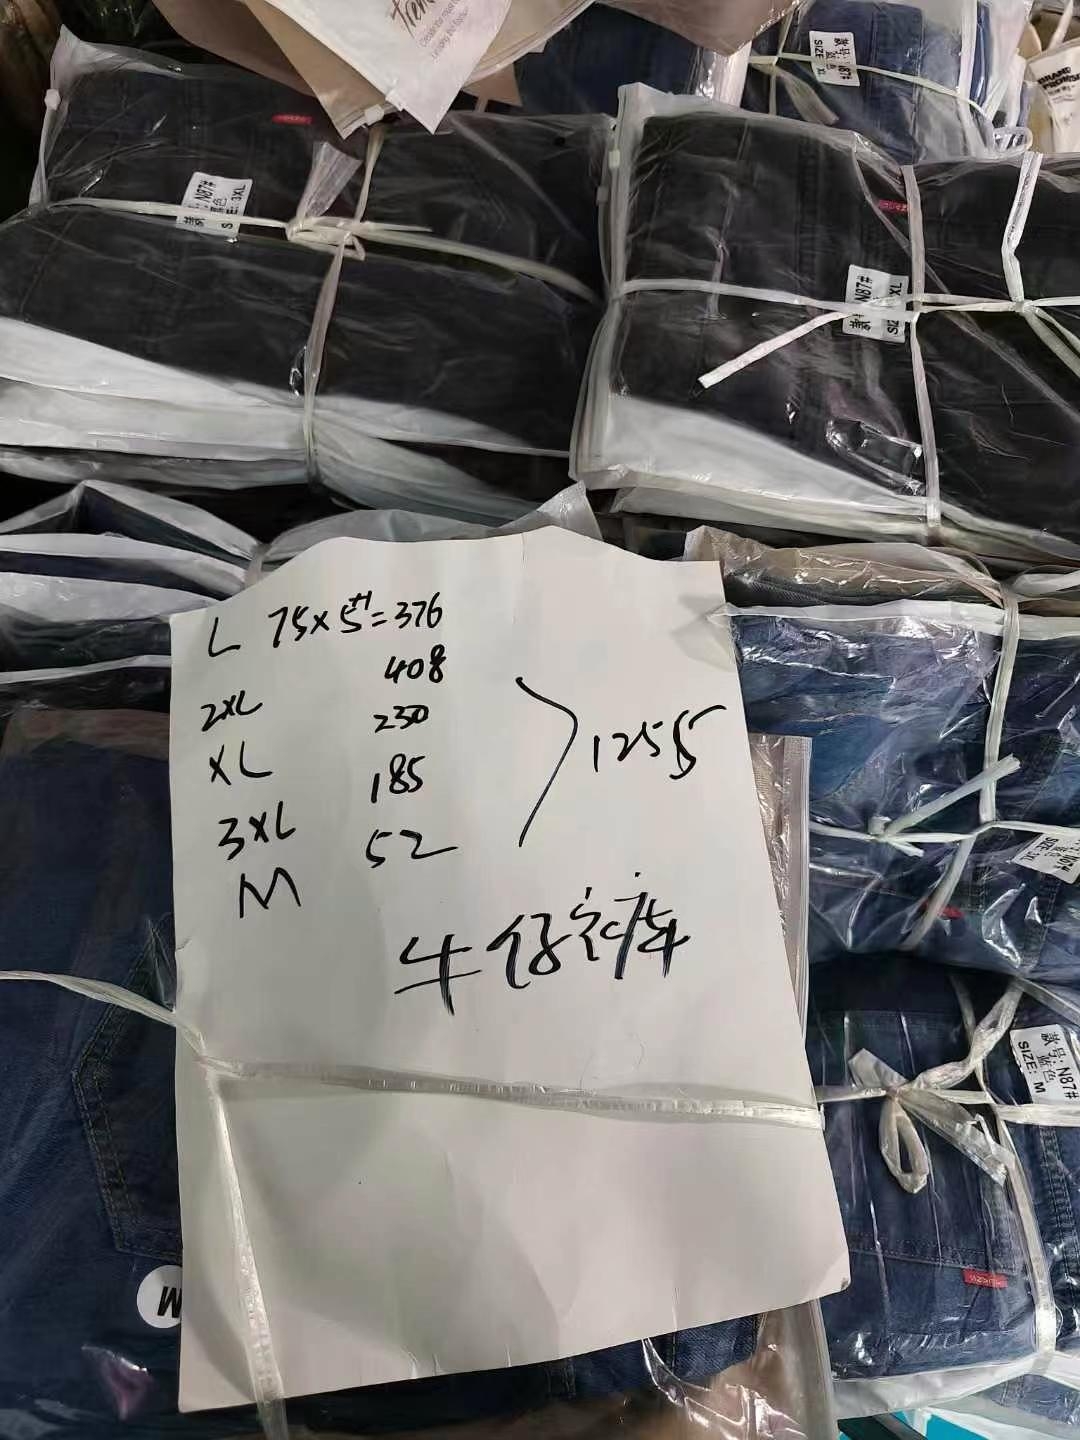 款号: N87#
蓝色
SIZE: XL
N87#
SIZE: 3XL
N87#
L 75×5+1=376
2XL 408
XL 230
3XL 185
M 52
1255
牛仔裤
款号: N87#
蓝色
SIZE: M
M